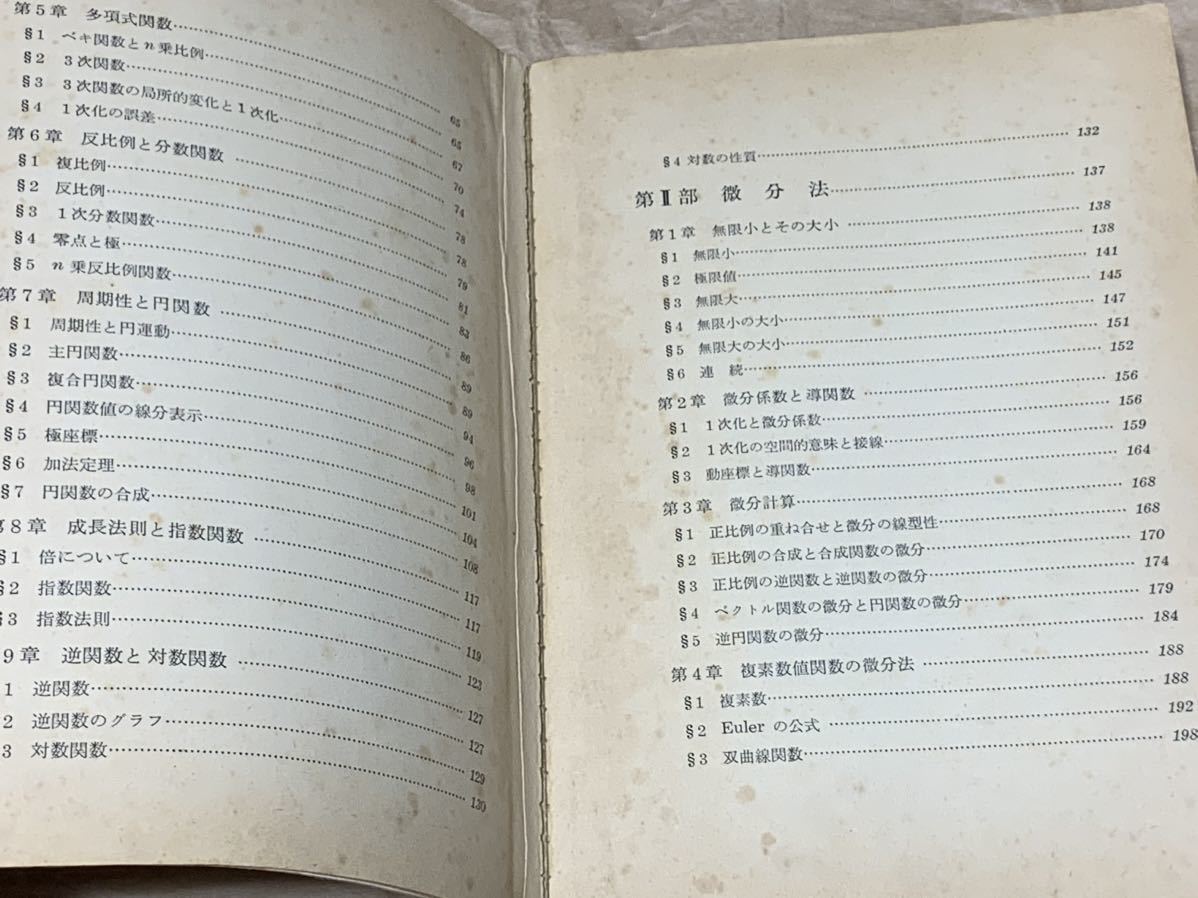 第5章 多項式関数 65
§1 ベキ関数とn乗比例 65
§2 3次関数 67
§3 3次関数の局所的変化と1次化 70
§4 1次化の誤差 74
第6章 反比例と分数関数 78
§1 複比例 78
§2 反比例 79
§3 1次分数関数 81
§4 零点と極 83
§5 n乗反比例関数 86
第7章 周期性と円関数 89
§1 周期性と円運動 89
§2 主円関数 94
§3 複合円関数 96
§4 円関数値の線分表示 98
§5 極座標 101
§6 加法定理 104
§7 円関数の合成 108
第8章 成長法則と指数関数 117
§1 倍について 117
§2 指数関数 119
§3 指数法則 123
9章 逆関数と対数関数 127
1 逆関数 127
2 逆関数のグラフ 129
3 対数関数 130
§4 対数の性質 132
第Ⅱ部 微分法 137
第1章 無限小とその大小 138
§1 無限小 138
§2 極限値 141
§3 無限大 145
§4 無限小の大小 147
§5 無限大の大小 151
§6 連続 152
第2章 微分係数と導関数 156
§1 1次化と微分係数 156
§2 1次化の空間的意味と接線 159
§3 動座標と導関数 164
第3章 微分計算 168
§1 正比例の重ね合せと微分の線型性 168
§2 正比例の合成と合成関数の微分 170
§3 正比例の逆関数と逆関数の微分 174
§4 ベクトル関数の微分と円関数の微分 179
§5 逆円関数の微分 184
第4章 複素数値関数の微分法 188
§1 複素数 188
§2 Euler の公式 192
§3 双曲線関数 198